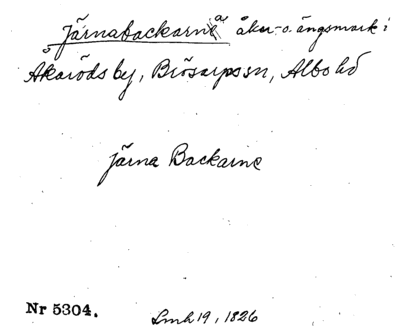 Järnabackarna åker- o. ängsmark i
Åkaröds by, Brösarps sn, Albo hd
Järna Backarne
Nr 5304.
Lmh 19, 1826